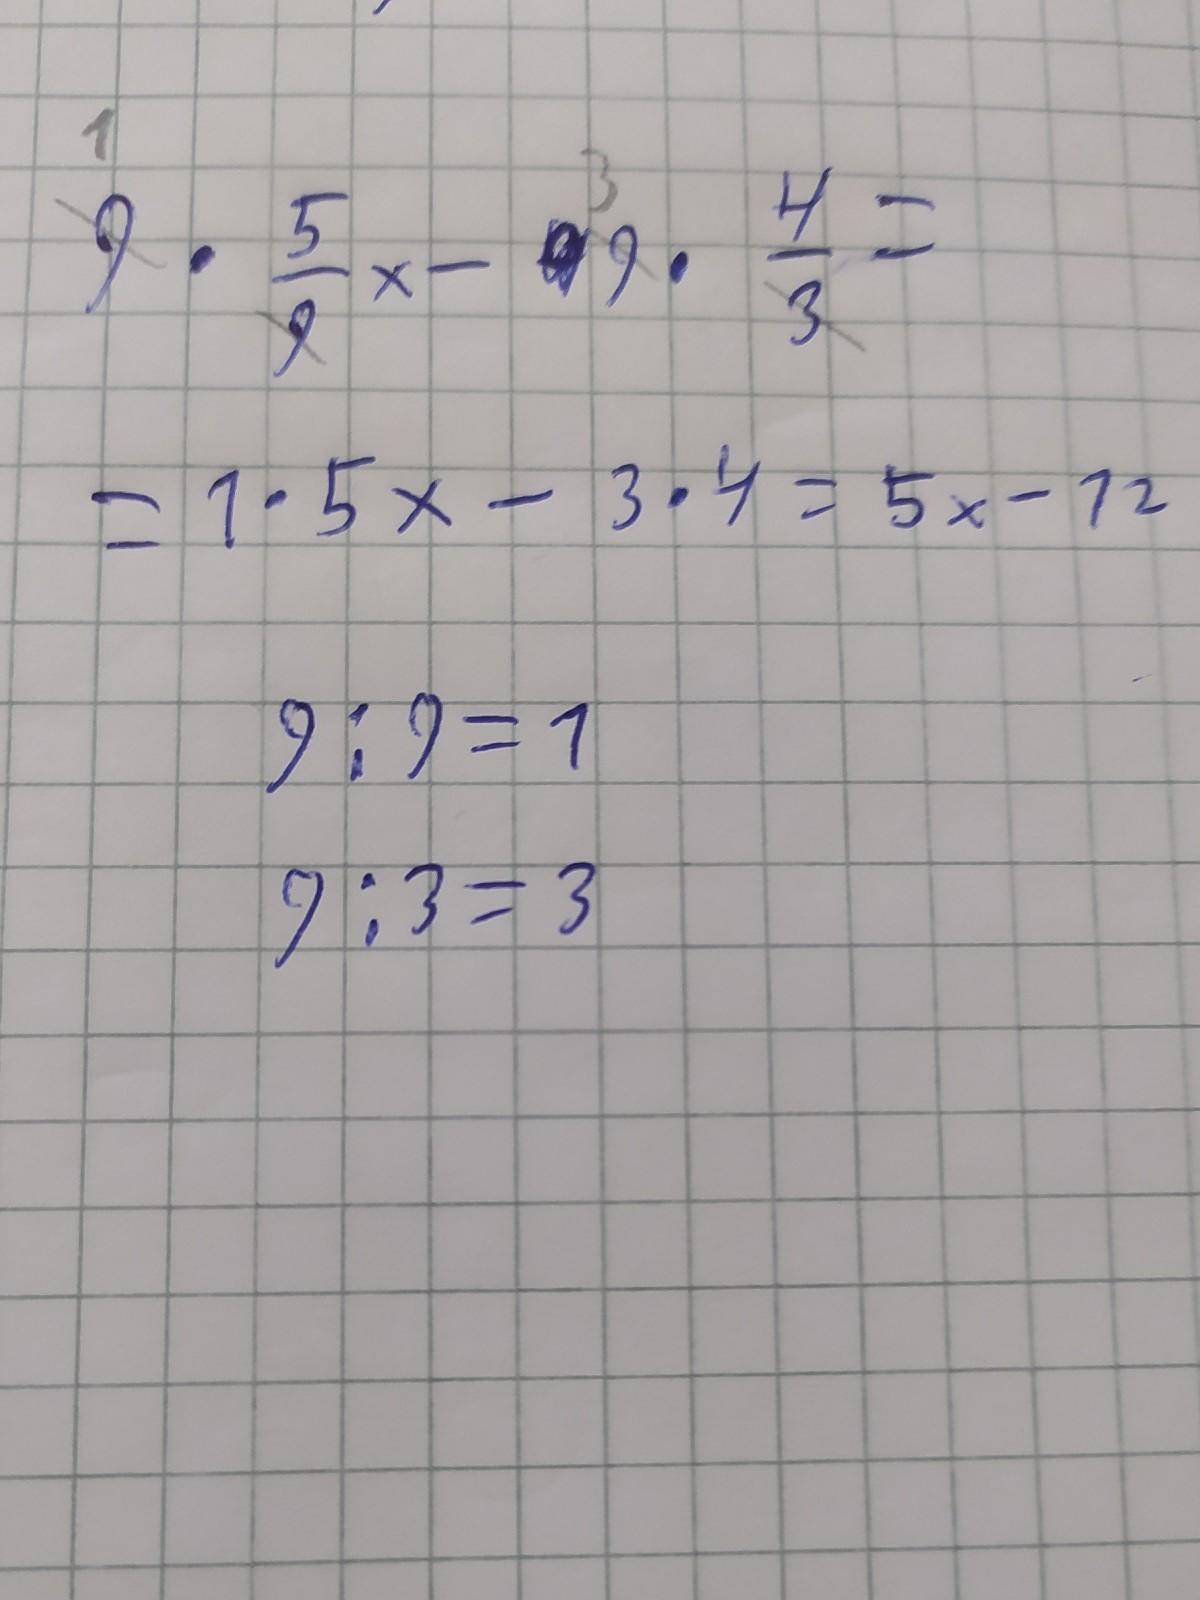 1 3
9 · 5/9 x - 9 · 4/3 =
= 1 · 5x - 3 · 4 = 5x - 12
9 : 9 = 1
9 : 3 = 3